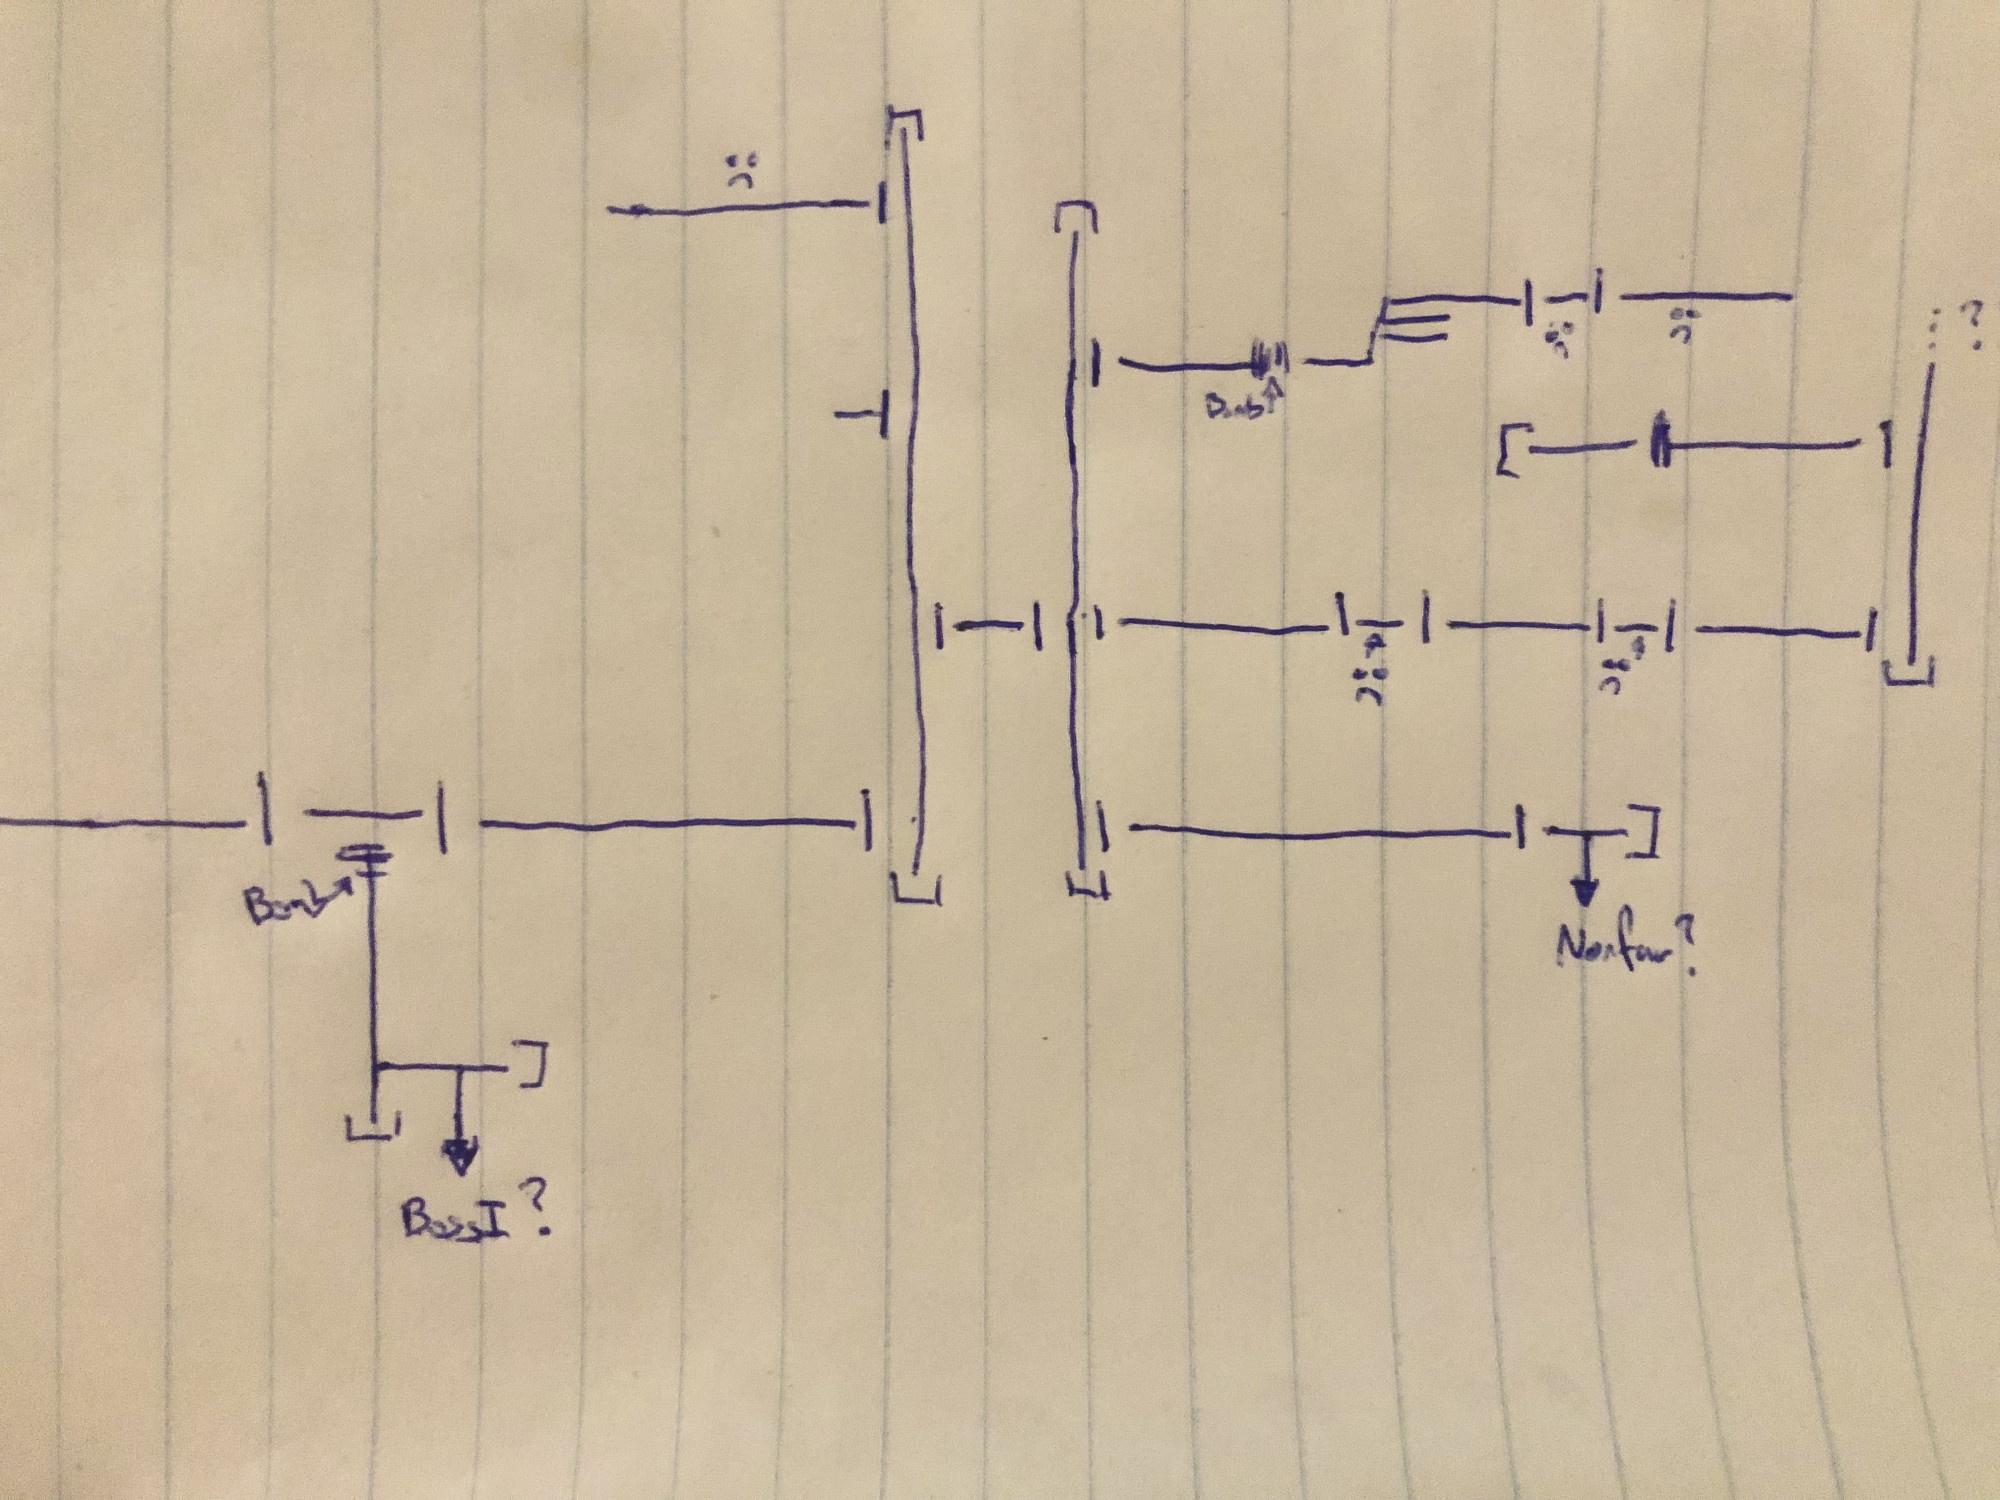 ?
Bomb
Bomb
Norfair?
BossI?